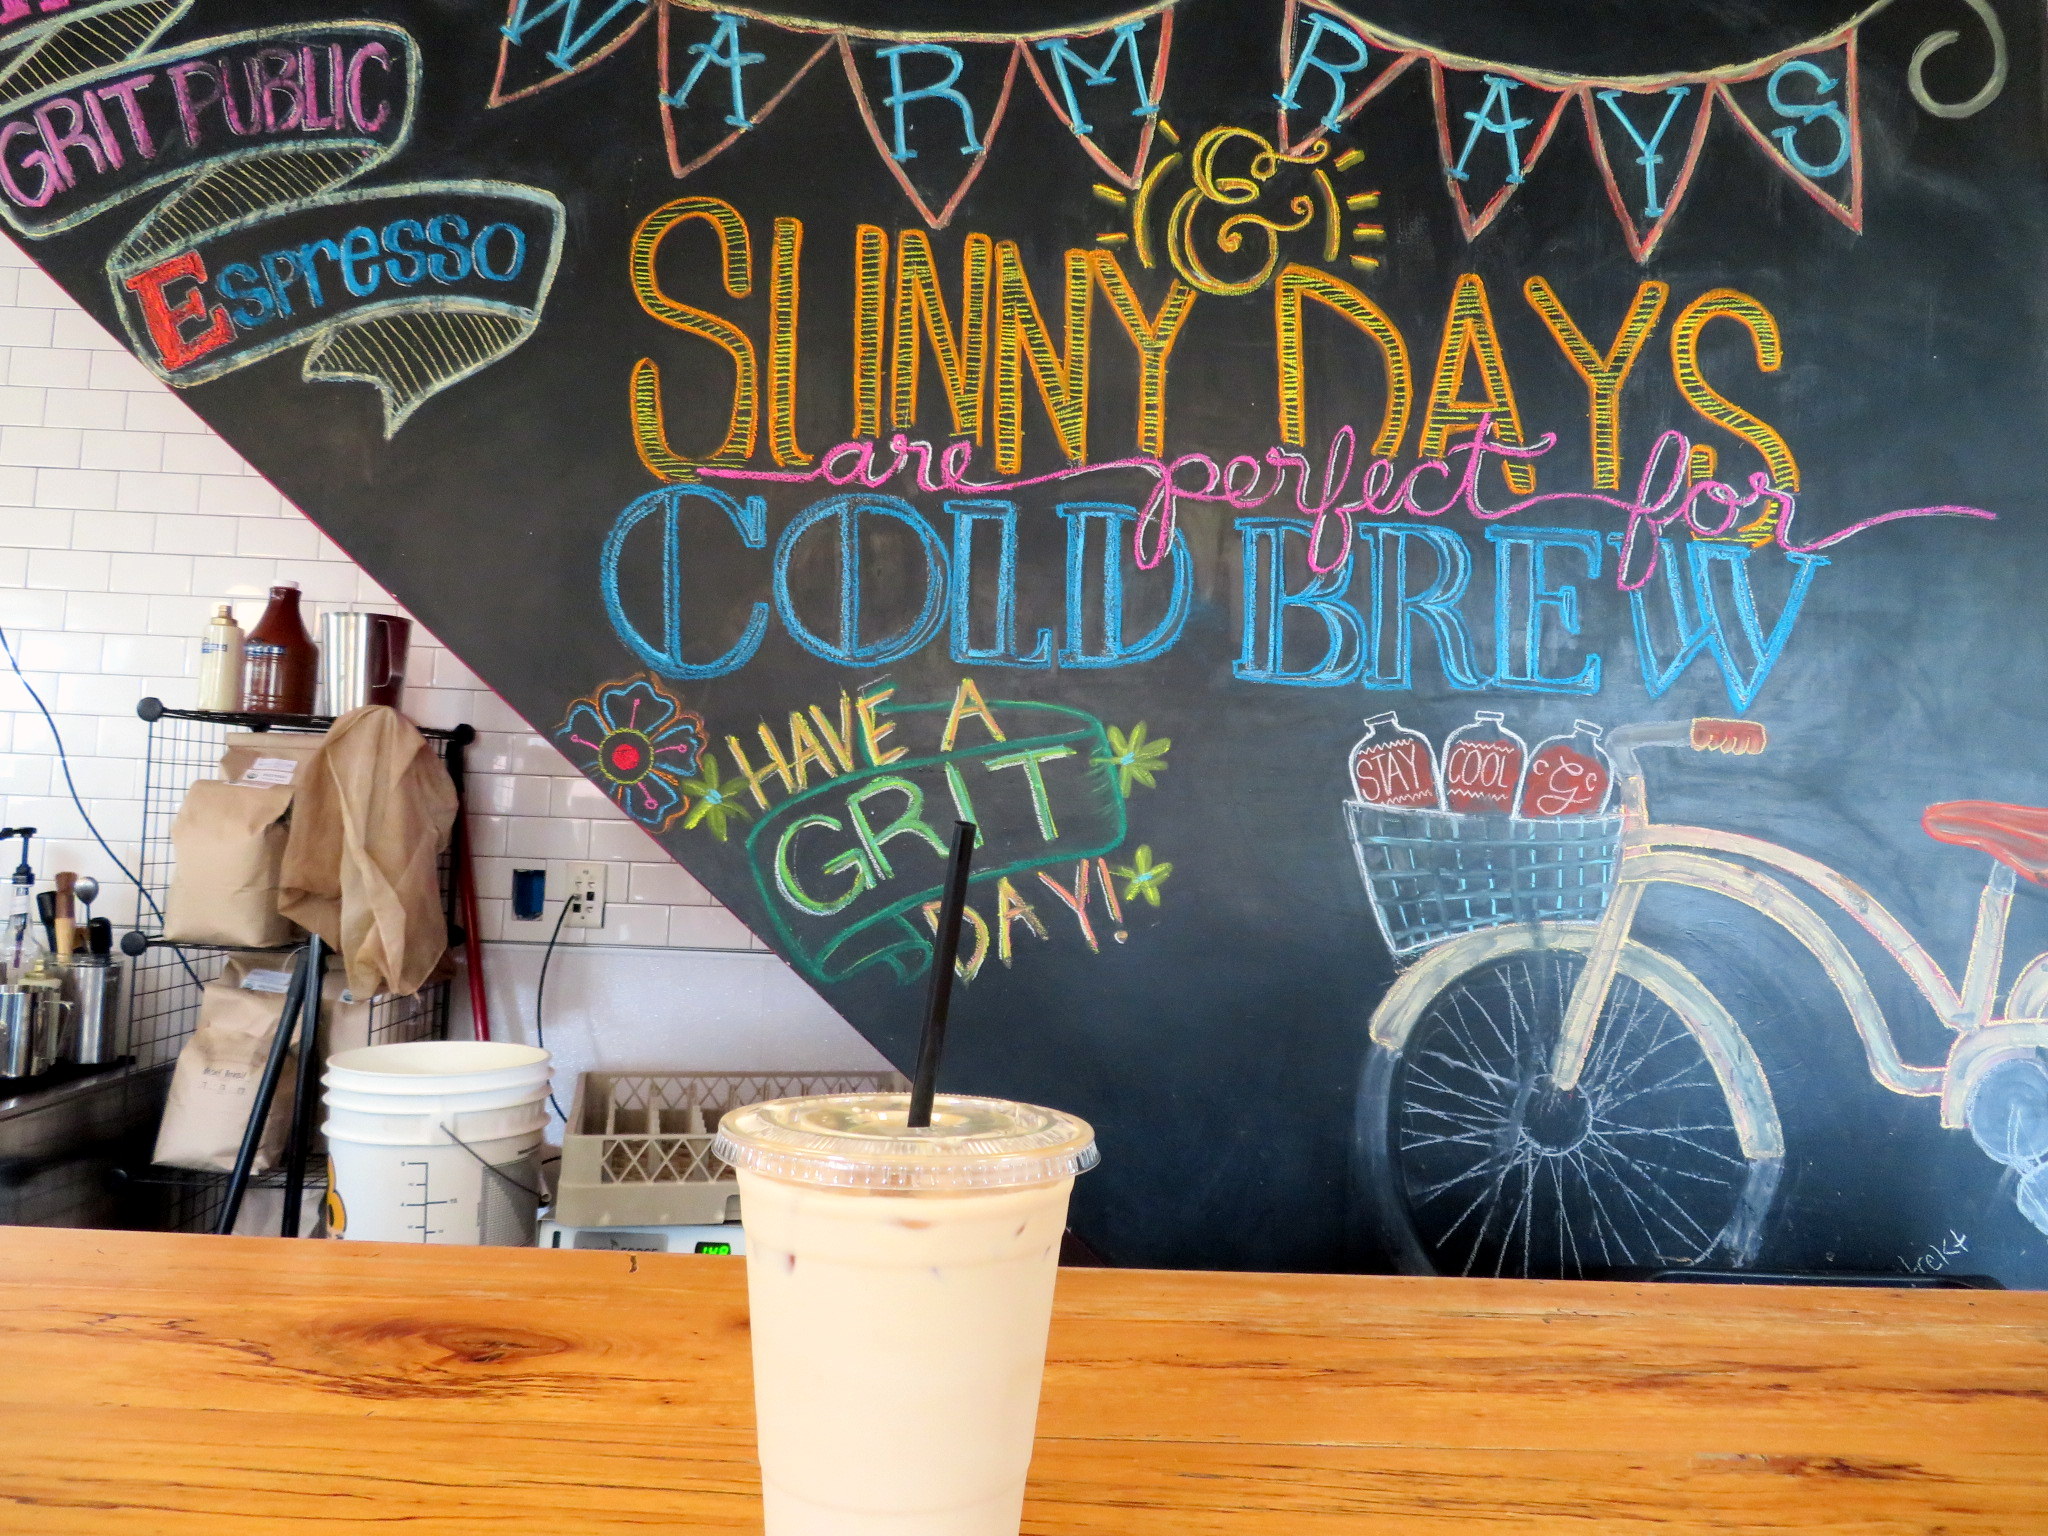 GRIT PUBLIC
Espresso
WARM RAYS
&
SUNNY DAYS
are perfect for
COLD BREW
HAVE A
GRIT
DAY!
STAY COOL G